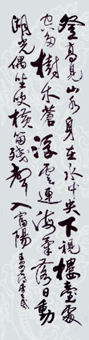 登高見山水身在水中央下視樓臺處
空多樹木蒼浮雲連海氣落日動
湖光偶坐吹橫笛殘聲入富陽